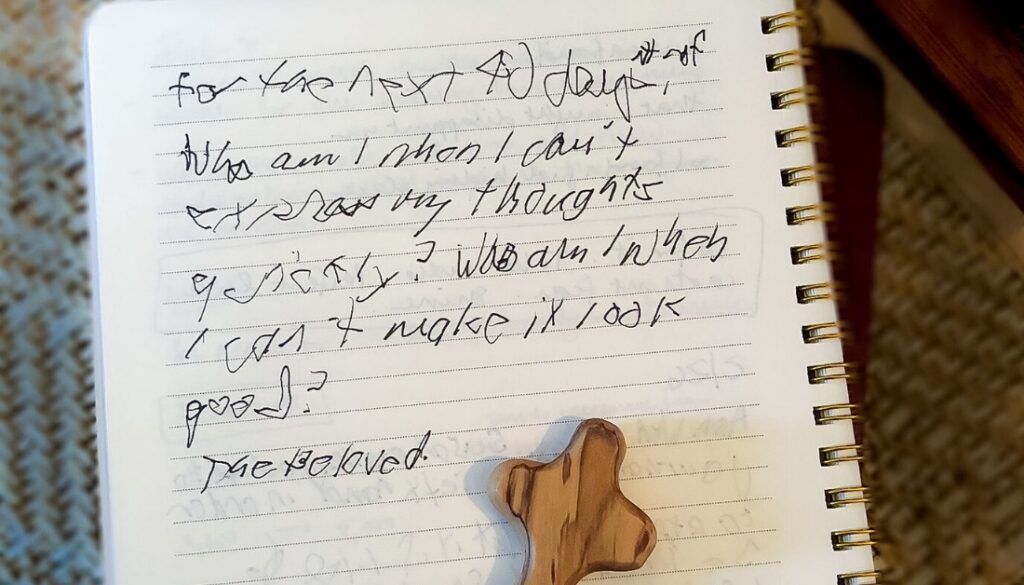 for the next 40 days,
Who am I when I can't
express my thoughts
quickly? Who am I when
I can't make it look
good?
The Beloved.